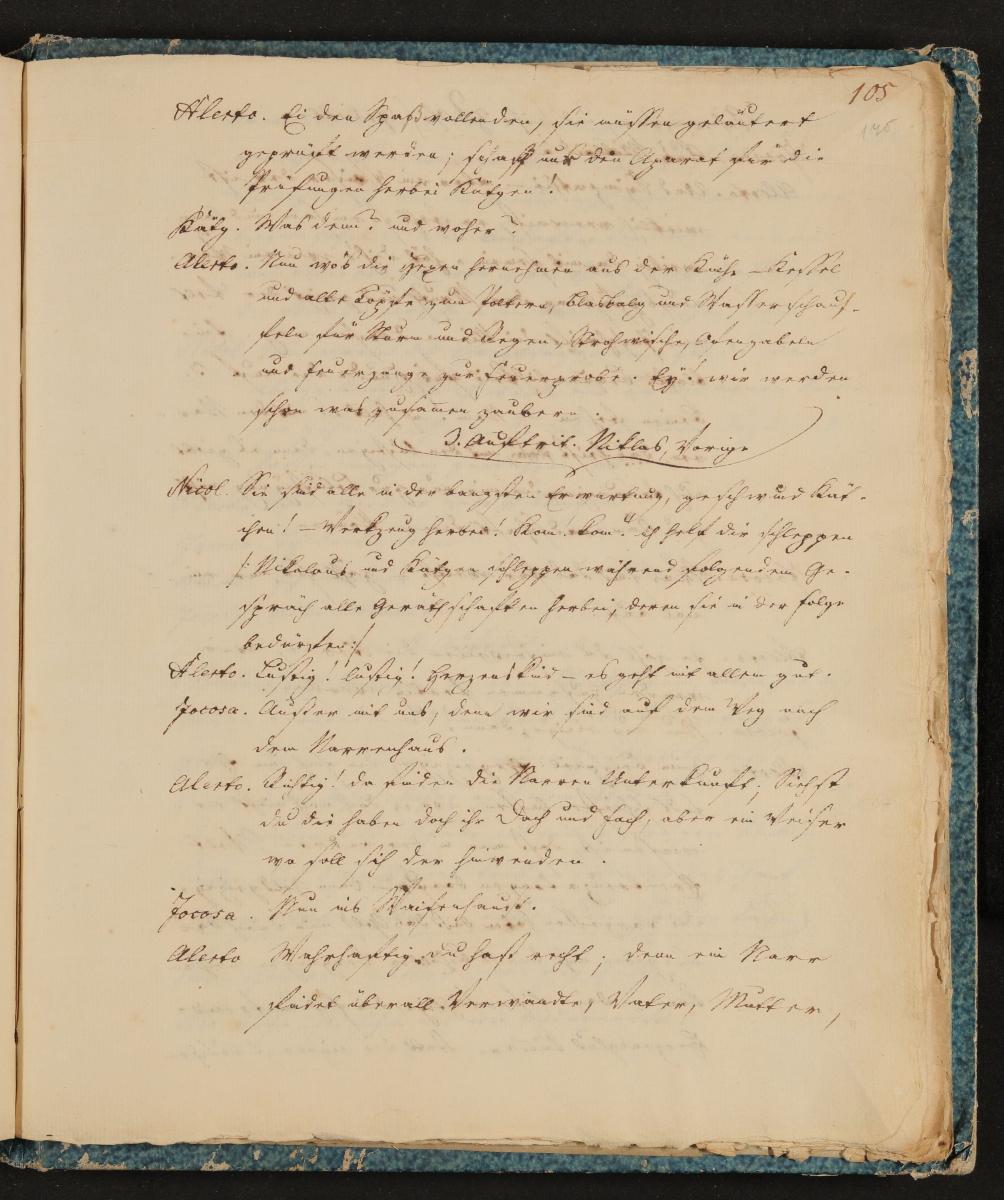 105
Alerto. Ei den Spaß vollenden, sie müssen geläutert
geprüft werden; schaff nur den Aparat für die
Prüfungen herbei Kätgen!
Kätg. Was denn? und woher?
Alerto. Nun wo's die Hexen hernehmen aus der Küche – Kessel
und alte Töpfe zum Poltern, Blasbalg und Wasserschauf-
feln für Sturm und Regen, Strohwische, Ofengabeln
und Feuerzange zur Feuerprobe. Ey! wir werden
schon was zusamen zaubern.
3. Auftrit. Niklas, Vorige
Nicol. Sie sind alle in der bangsten Erwartung, geschwind Kät-
chen! – Werkzeug herbei! Kom. kom! ich helf dir schleppen
/: Nikolaus und Kätgen schleppen während folgendem Ge-
spräch alle Geräthschaften herbei, deren sie in der Folge
bedürfen :/
Alerto. Lustig! lustig! Herzenskind – es geht mit allem gut.
Jocosa. Außer mit uns, denn wir sind auf dem Weg nach
dem Narrenhaus.
Alerto. Richtig! da finden die Narren Unterkunft; Siehst
du die haben doch ihr Dach und Fach, aber ein Weiser
wo soll sich der hinwenden.
Jocosa. Nun ins Waisenhaus.
Alerto Wahrhaftig du hast recht; denn ein Narr
findet überall Verwandte, Vater, Mutter,